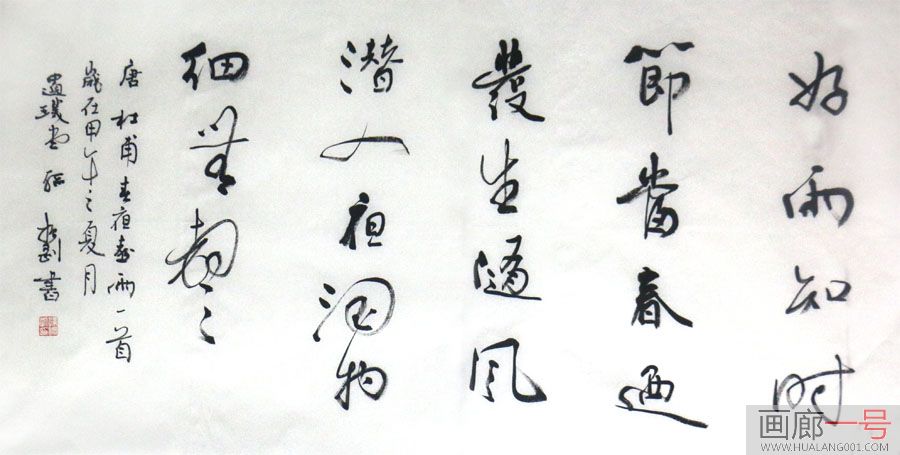 好雨知时
節當春迺
發生随風
潜入夜润物
细無聲
唐杜甫春夜喜雨一首
歲在甲午之夏月
堂 書
画廊一号
WWW.HUALANG001.COM